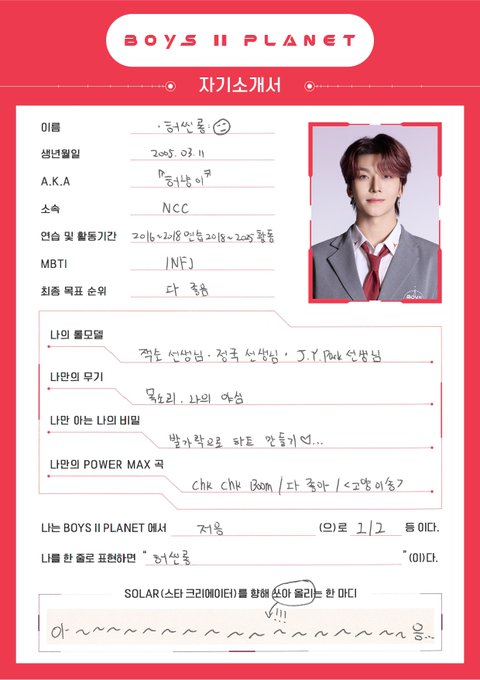 BOYS II PLANET
자기소개서
이름 · 허씬롱:
생년월일 2005. 03. 11
A.K.A "허랑이"
소속 NCC
연습 및 활동기간 2016~2018 연습 2018~2025 활동
MBTI INFJ
최종 목표 순위 다 좋음
BOYS
나의 롤모델
잭슨 선생님 · 정국 선생님 · J.Y.Park 선생님
나만의 무기
목소리. 나의 야심
나만 아는 나의 비밀
발가락으로 하트 만들기♡...
나만의 POWER MAX 곡
Chk Chk Boom / 다 좋아 / <고양이송>
나는 BOYS II PLANET 에서 저음 (으)로 1/2 등 이다.
나를 한 줄로 표현하면 " 허씬롱 " (이)다.
SOLAR(스타 크리에이터)를 향해 쏘아 올리는 한 마디
!!!
아~~~~~~~~~~~~~~~~~응...